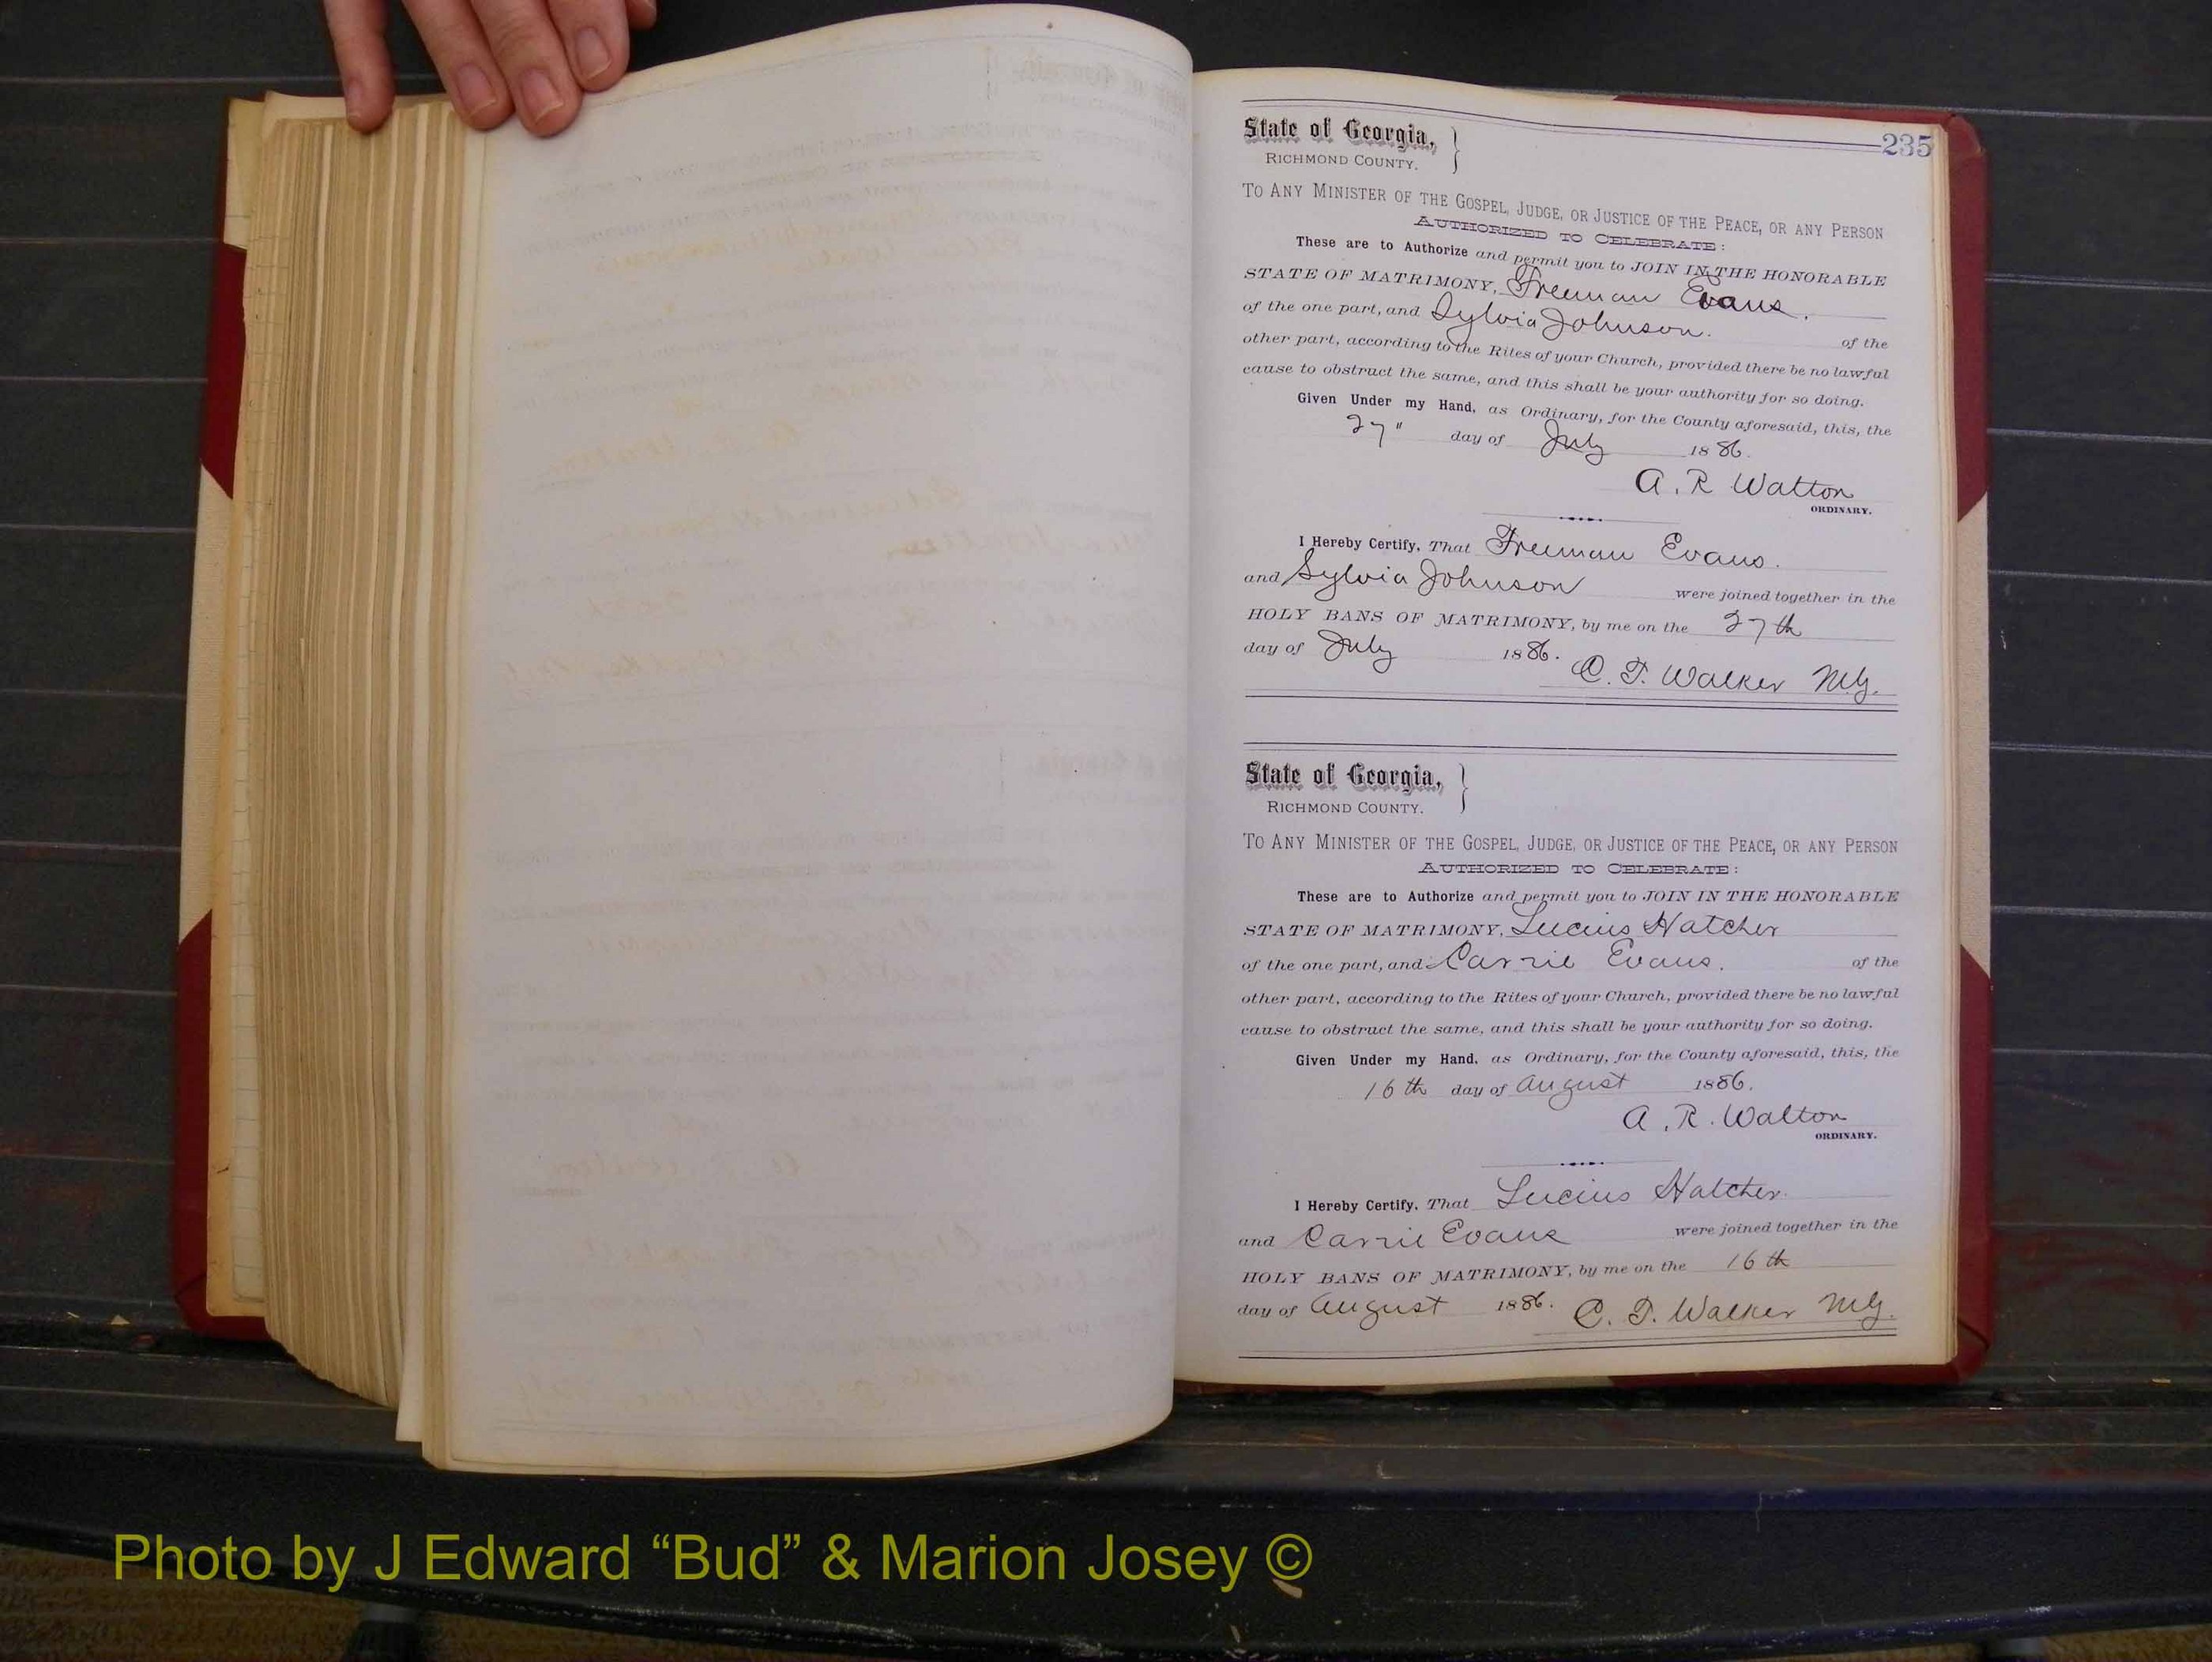 235
State of Georgia,
RICHMOND COUNTY.
TO ANY MINISTER OF THE GOSPEL, JUDGE, OR JUSTICE OF THE PEACE, OR ANY PERSON
AUTHORIZED TO CELEBRATE:
These are to Authorize and permit you to JOIN IN THE HONORABLE
STATE OF MATRIMONY, Freeman Evans.
of the one part, and Sylvia Johnson. of the
other part, according to the Rites of your Church, provided there be no lawful
cause to obstruct the same, and this shall be your authority for so doing.
Given Under my Hand, as Ordinary, for the County aforesaid, this, the
27" day of July 1886.
A. R Walton
ORDINARY.
I Hereby Certify, That Freeman Evans.
and Sylvia Johnson were joined together in the
HOLY BANS OF MATRIMONY, by me on the 27th
day of July 1886. C. T. Walker M.G.
State of Georgia,
RICHMOND COUNTY.
TO ANY MINISTER OF THE GOSPEL, JUDGE, OR JUSTICE OF THE PEACE, OR ANY PERSON
AUTHORIZED TO CELEBRATE:
These are to Authorize and permit you to JOIN IN THE HONORABLE
STATE OF MATRIMONY, Lucius Hatcher
of the one part, and Carrie Evans. of the
other part, according to the Rites of your Church, provided there be no lawful
cause to obstruct the same, and this shall be your authority for so doing.
Given Under my Hand, as Ordinary, for the County aforesaid, this, the
16th day of August 1886.
A. R. Walton
ORDINARY.
I Hereby Certify, That Lucius Hatcher.
and Carrie Evans were joined together in the
HOLY BANS OF MATRIMONY, by me on the 16th
day of August 1886. C. T. Walker M.G.
Photo by J Edward “Bud” & Marion Josey ©